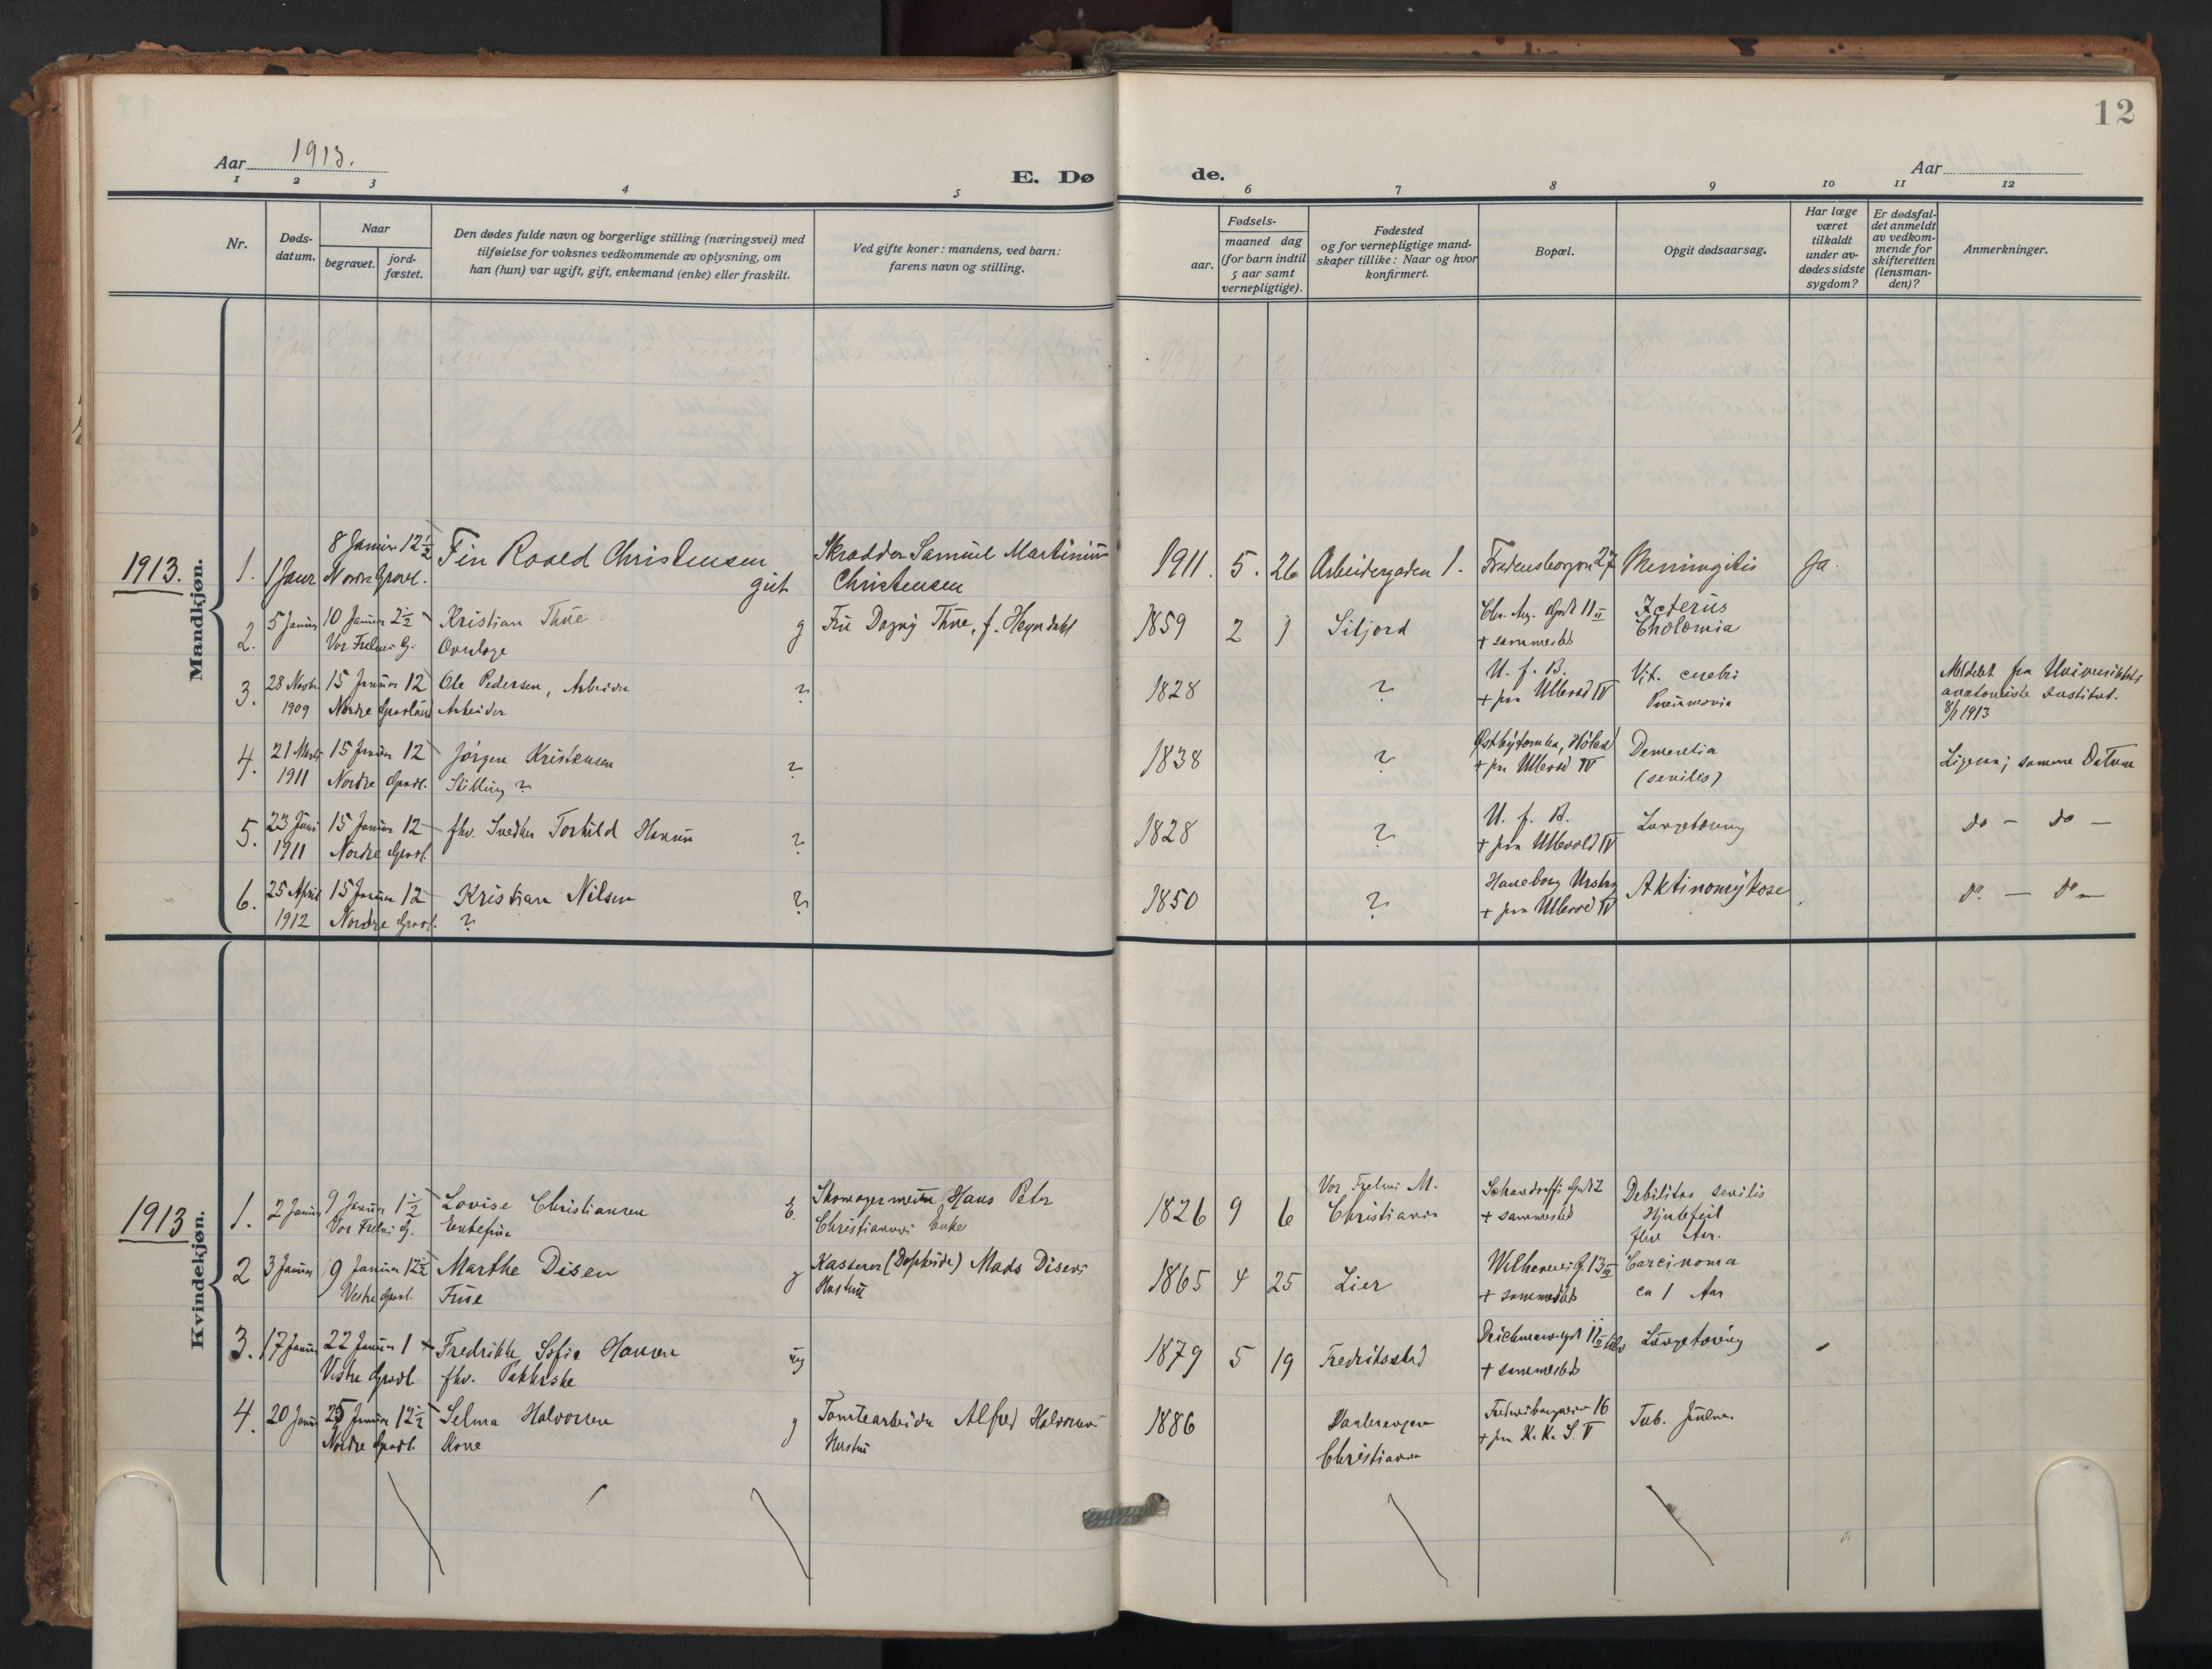 12
Aar 1913.
E. Dø
de.
Aar
1 2 3 4 5 6 7 8 9 10 11 12
Nr.
Døds-
datum.
Naar
begravet.
jord-
fæstet.
Den dødes fulde navn og borgerlige stilling (næringsvei) med
tilføielse for voksnes vedkommende av oplysning, om
han (hun) var ugift, gift, enkemand (enke) eller fraskilt.
Ved gifte koner: mandens, ved barn:
farens navn og stilling.
Fødsels-
aar.
maaned dag
(for barn indtil
5 aar samt
vernepligtige).
Fødested
og for vernepligtige mand-
skaper tillike: Naar og hvor
konfirmert.
Bopæl.
Opgit dødsaarsag.
Har læge
været
tilkaldt
under av-
dødes sidste
sygdom?
Er dødsfal-
det anmeldt
av vedkom-
mende for
skifteretten
(lensman-
den)?
Anmerkninger.
1913.
Mandkjøn.
1. 1 Janr 8 Januar 12 1/2
Nordre Gravl.
Fin Roald Christensen
gut
Skrædder Samuel Martinius
Christensen
1911. 5. 26 Arbeidergaden 1. 27 Meningitis Ja.
2. 5 Januar 10 Januar 2 1/2
Vor Frelsers G.
Kristian Thue
Overlæge
g Fru Dagny Thue, f. Heyerdahl
1859 2 1 Siljord 11 II
+ sammested
Icterus
Cholæmia
3. 28 Novbr. 1909
15 Januar 12
Nordre Gravlund
Ole Pedersen, Arbeider
Arbeider
?
1828 ? U. f. B.
+ paa Ullevod IV
Vit. cerebri
Pneumonia
Meldet fra Universitetets
anatomiske Institut.
8/1 1913
4. 21 Marts 1911
15 Januar 12
Nordre Gravl.
Jørgen Kristensen
Stilling ?
?
1838 ? Høland
+ paa Ullevod IV
Dementia
(senilis)
Ligesaa; samme Datum
5. 23 Juni 1911
15 Januar 12
Nordre Gravl.
fhv. Snedker Torkild Hansen
?
1828 ? U. f. B.
+ paa Ullevold IV
Lungetæring
do - do -
6. 25 April 1912
15 Januar 12
Nordre Gravl.
Kristian Nilsen
?
?
1850 ? Haneborg Urskog
+ paa Ullevod IV
Aktinomykose
do - do -
1913
Kvindekjøn.
1. 2 Januar 9 Januar 1 1/2
Vor Frelsers G.
Lovise Christiansen
Enkefrue
E.
Skomagermester Hans Peter
Christiansens Enke
1826 9 6 Vor Frelsers M.
Christiania
Schandorffs Gade 2
+ sammested
Debilitas senilis
Hjertefeil
flere Aar.
2 3 Januar 9 Januar 12 1/2
Vestre Gravl.
Marthe Disen
Frue
g
Kasserer Mads Disens
Hustru
1865 4 25 Lier
Wilhelmsens G. 13 III
+ sammested
Carcinoma
ca 1 Aar
3. 17 Januar 22 Januar 1
Vestre Gravl.
Fredrikke Sofie Hansen
fhv. Pakkerske
ug
1879 5 19 Fredriksstad
+ sammested
Lungetæring
4. 20 Januar 25 Januar 12 1/2
Nordre Gravl.
Selma Halvorsen
Kone
g
Tomtearbeider Alfred Halvorsens
Hustru
1886 Vaalerengen
Christiania
16
+ paa K. K. S. V
Tub. pulm.